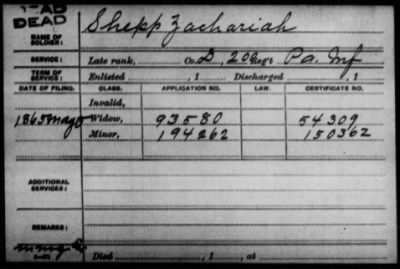 DEAD
DEAD
Shepp Zachariah
NAME OF SOLDIER:
SERVICE: Late rank, Co. D, 200 Reg't Pa. Inf
TERM OF SERVICE: Enlisted , 1 Discharged , 1
DATE OF FILING. CLASS. APPLICATION NO. LAW. CERTIFICATE NO.
Invalid,
1865 May Widow, 93580 54309
Minor, 194262 150362
ADDITIONAL SERVICES:
REMARKS:
Died , 1 , at